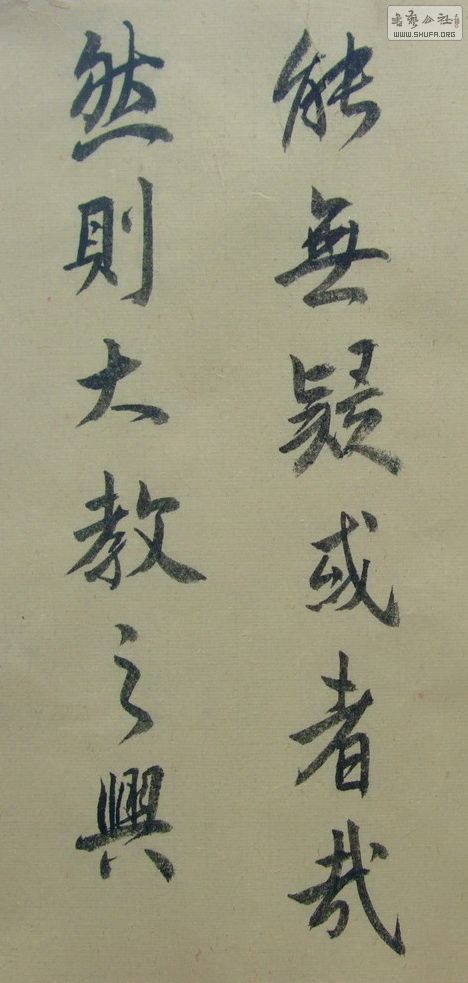 能無疑或者哉
然則大教之興
書藝公社
WWW.SHUFA.ORG